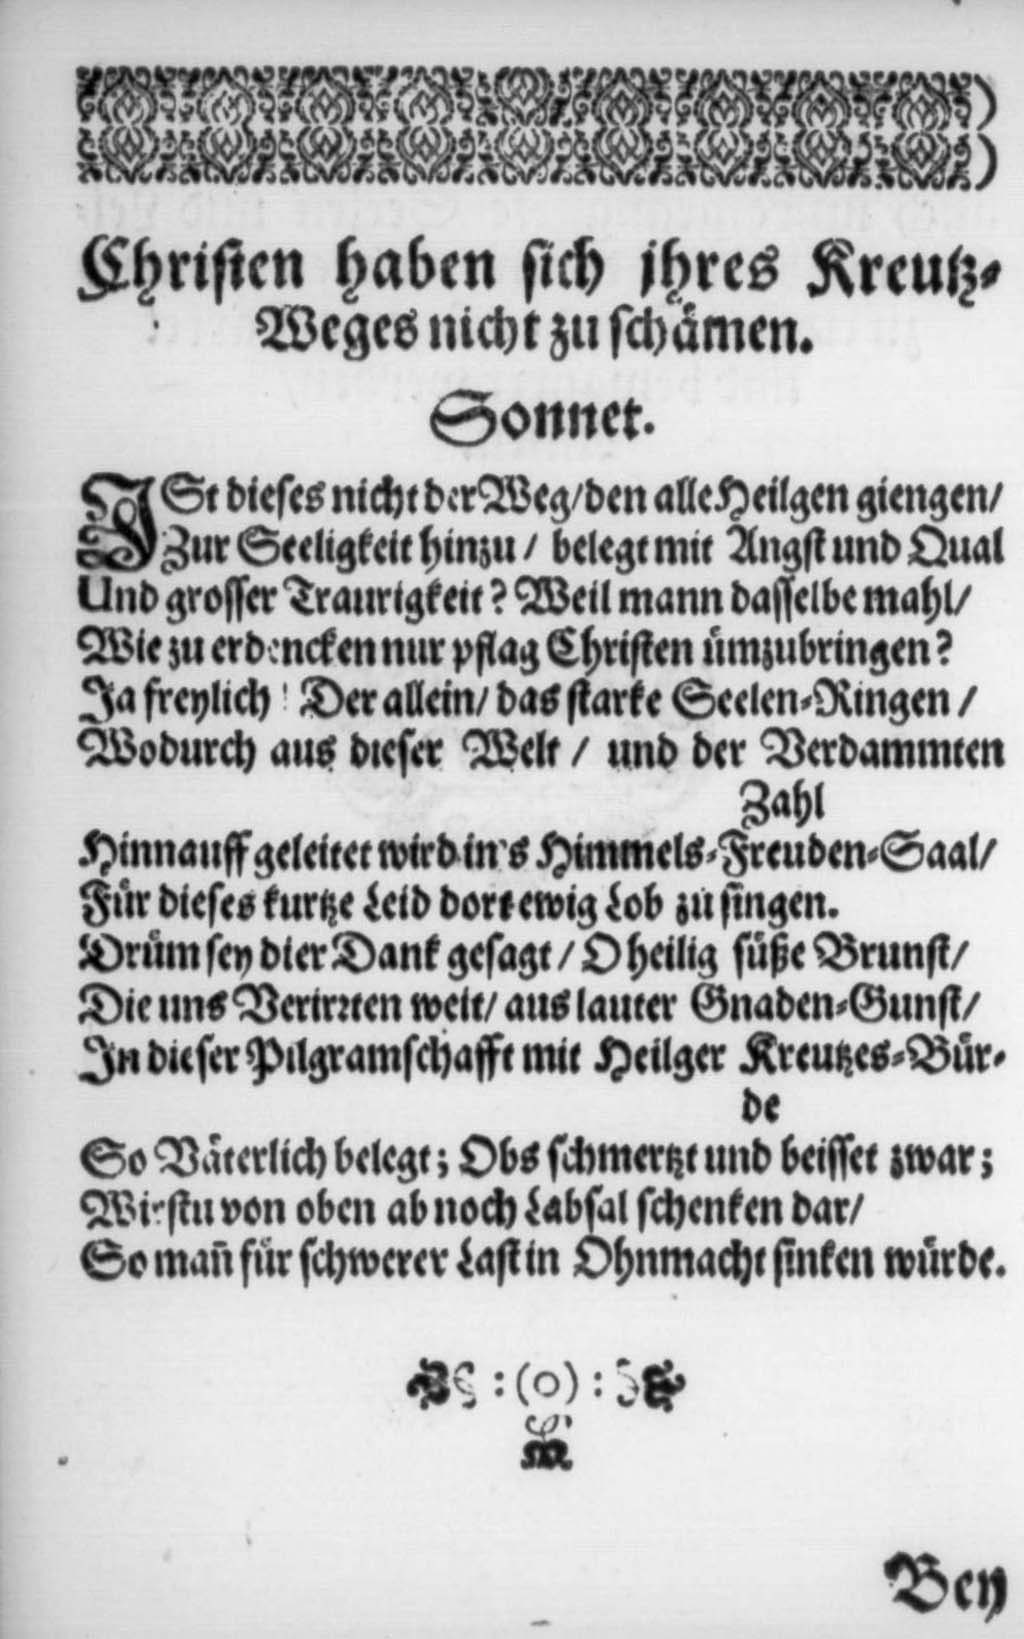 Christen haben sich jhres Kreutz-
Weges nicht zu schämen.
Sonnet.
ISt dieses nicht der Weg/ den alle Heilgen giengen/
Zur Seeligkeit hinzu / belegt mit Angst und Qual
Und grosser Traurigkeit? Weil mann dasselbe mahl/
Wie zu erdencken nur pflag Christen ümzubringen?
Ja freylich! Der allein/ das starke Seelen-Ringen /
Wodurch aus dieser Welt / und der Verdammten
Zahl
Hinnauff geleitet wird in's Himmels-Freuden-Saal/
Für dieses kurtze Leid dort ewig Lob zu singen.
Drüm sey dier Dank gesagt / O heilig süße Brunst/
Die uns Verirrten weit/ aus lauter Gnaden-Gunst/
In dieser Pilgramschafft mit Heilger Kreutzes-Bür-
de
So Väterlich belegt; Obs schmertzt und beisset zwar;
Wirstu von oben ab noch Labsal schenken dar/
So man̄ für schwerer Last in Ohnmacht sinken würde.
:(o):
Bey